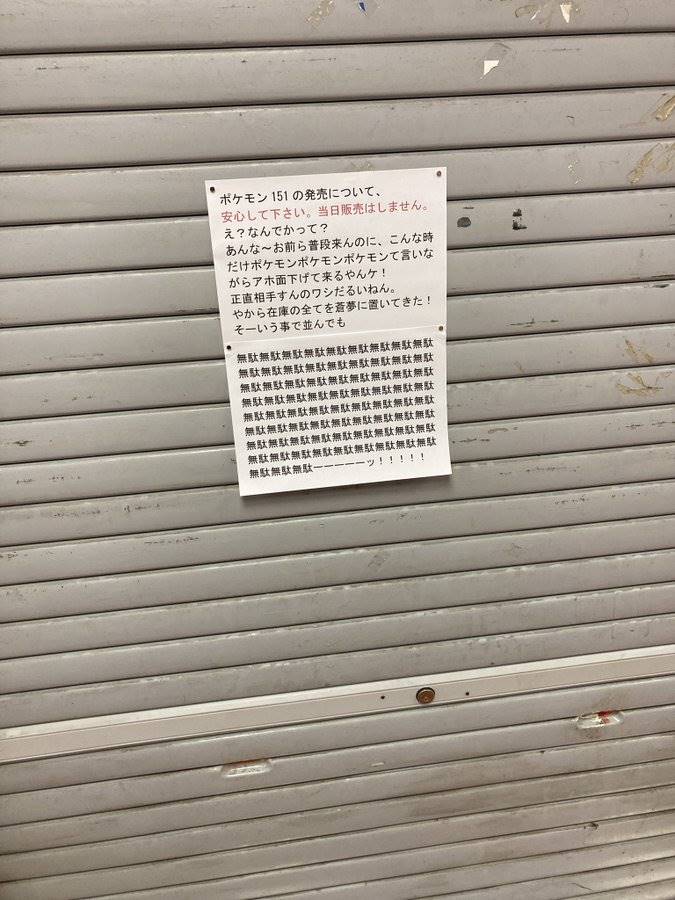 ポケモン 151 の発売について、
安心して下さい。当日販売はしません。
え？なんでかって？
あんな～お前ら普段来んのに、こんな時
だけポケモンポケモンポケモンて言いな
がらアホ面下げて来るやんケ！
正直相手すんのワシだるいねん。
やから在庫の全てを蒼夢に置いてきた！
そーいう事で並んでも
無駄無駄無駄無駄無駄無駄無駄無駄無駄
無駄無駄無駄無駄無駄無駄無駄無駄無駄
無駄無駄無駄無駄無駄無駄無駄無駄無駄
無駄無駄無駄無駄無駄無駄無駄無駄無駄
無駄無駄無駄無駄無駄無駄無駄無駄無駄
無駄無駄無駄無駄無駄無駄無駄無駄無駄
無駄無駄無駄無駄無駄無駄無駄無駄無駄
無駄無駄無駄無駄無駄無駄無駄無駄無駄
無駄無駄無駄ーーーーーッ！！！！！